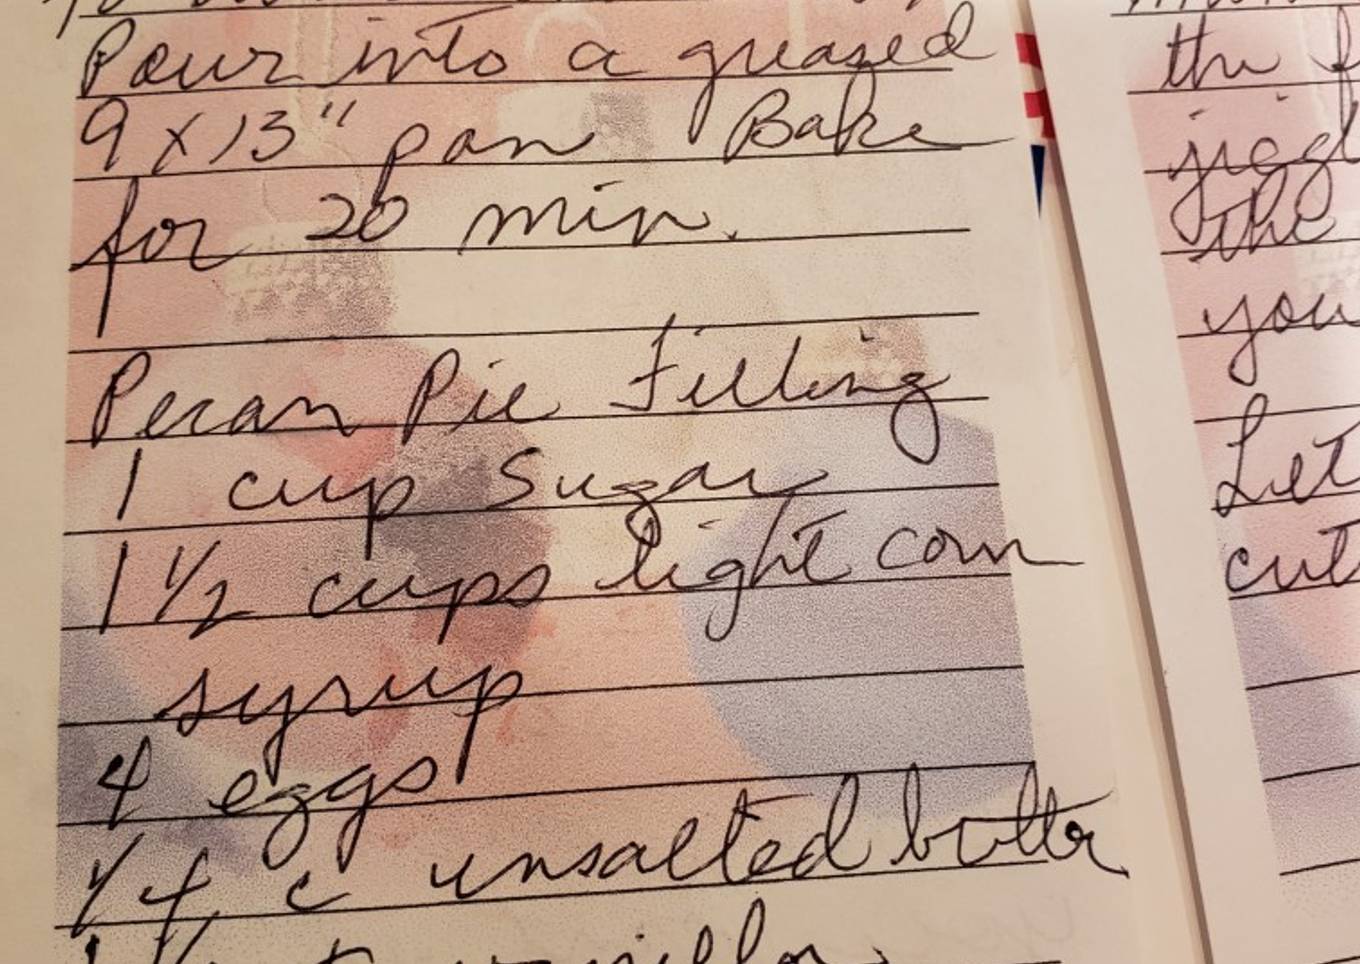 Pour into a greased
9 x 13" pan Bake
for 20 min.
Pecan Pie Filling
1 cup Sugar
1 1/2 cups light corn
syrup
4 eggs
1/4 c unsalted butter
vanilla
the
jiggl
the
you
Let
cut